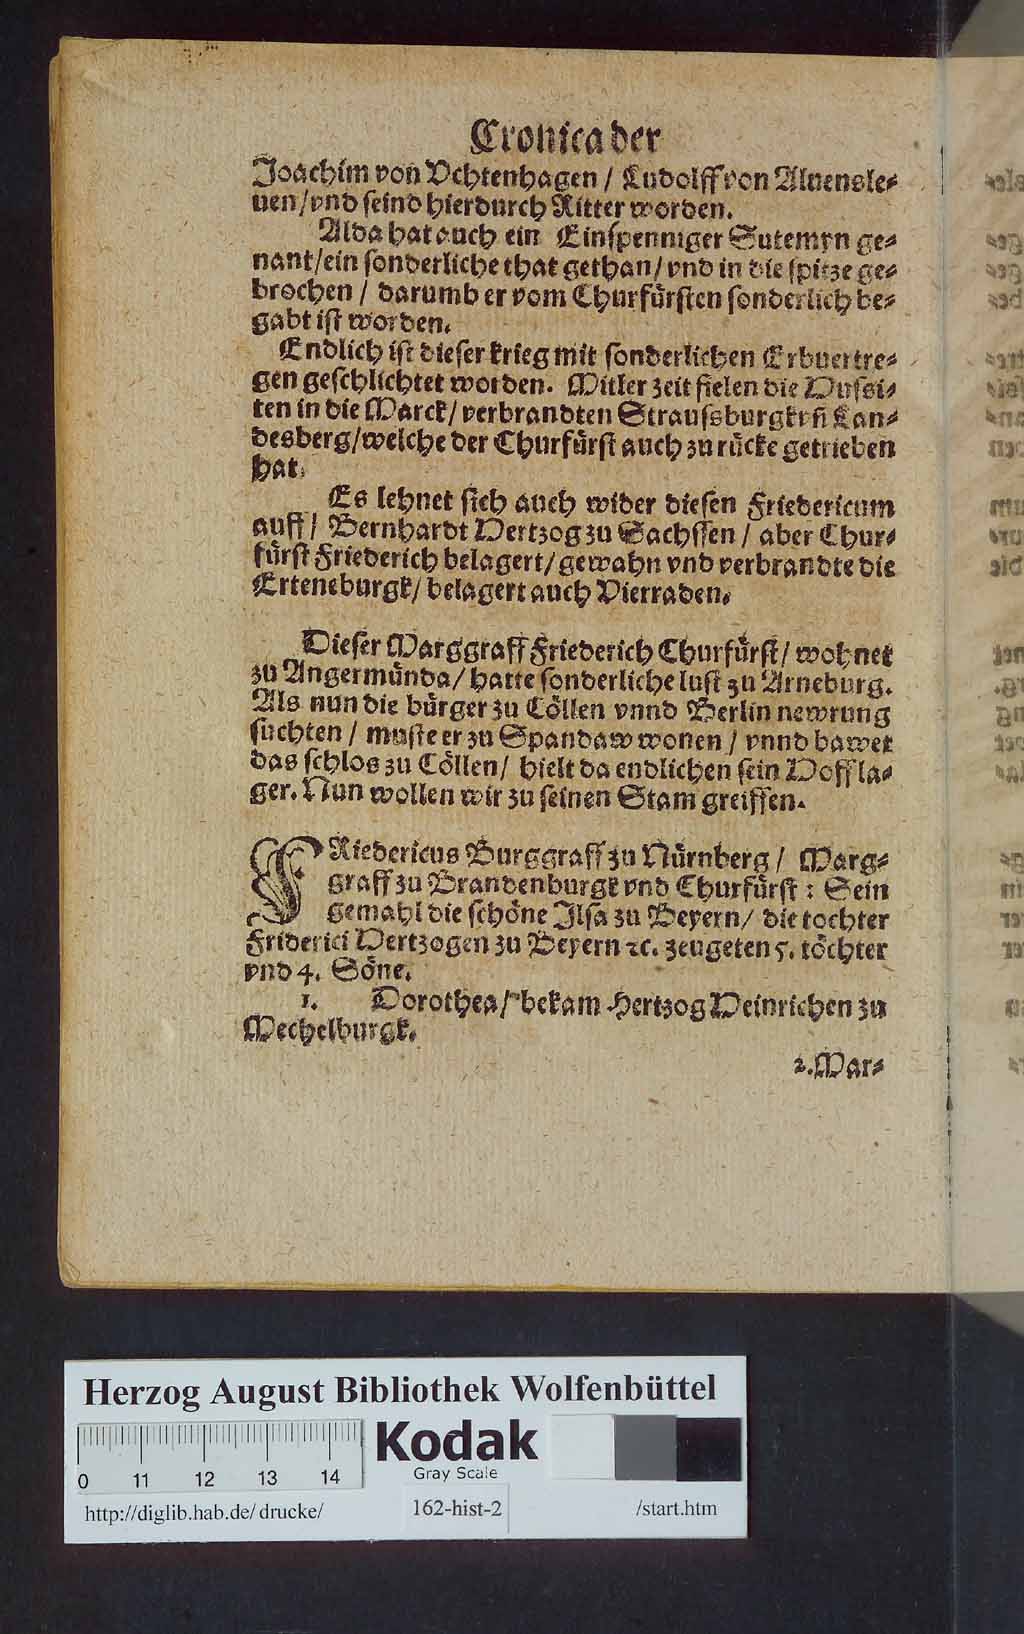 Cronica der
Joachim von Vchtenhagen / Ludolff von Aluensle⸗
uen / vnd seind hierdurch Ritter worden.
Alda hat auch ein Einspenniger Sutemyn ge⸗
nant / ein sonderliche that gethan / vnd in die spitze ge⸗
brochen / darumb er vom Churfürsten sonderlich be⸗
gabt ist worden.
Endlich ist dieser krieg mit sonderlichen Erbuertre⸗
gen geschlichtet worden. Mitler zeit fielen die Hussi⸗
ten in die Marck / verbrandten Straussburgk vñ Lan⸗
desberg / welche der Churfürst auch zu rücke getrieben
hat.
Es lehnet sich auch wider diesen Friedericum
auff / Bernhardt Hertzog zu Sachssen / aber Chur⸗
fürst Friederich belagert / gewahn vnd verbrandte die
Erteneburgk / belagert auch Vierraden.
Dieser Marggraff Friederich Churfürst / wohnet
zu Angermünda / hatte sonderliche lust zu Arneburg.
Als nun die bürger zu Cöllen vnnd Berlin newrung
suchten / muste er zu Spandaw wonen / vnnd bawet
das schlos zu Cöllen / hielt da endlichen sein Hoffla⸗
ger. Nun wollen wir zu seinen Stam greiffen.
FRiedericus Burggraff zu Nürnberg / Marg⸗
graff zu Brandenburgk vnd Churfürst : Sein
gemahl die schöne Ilsa zu Beyern / die tochter
Friderici Hertzogen zu Beyern ꝛc. zeugeten 5. töchter
vnd 4. Söne.
1. Dorothea / bekam Hertzog Heinrichen zu
Mechelburgk.
2. Mar⸗
Herzog August Bibliothek Wolfenbüttel
0 11 12 13 14
Kodak
Gray Scale
http://diglib.hab.de/drucke/ 162-hist-2 /start.htm